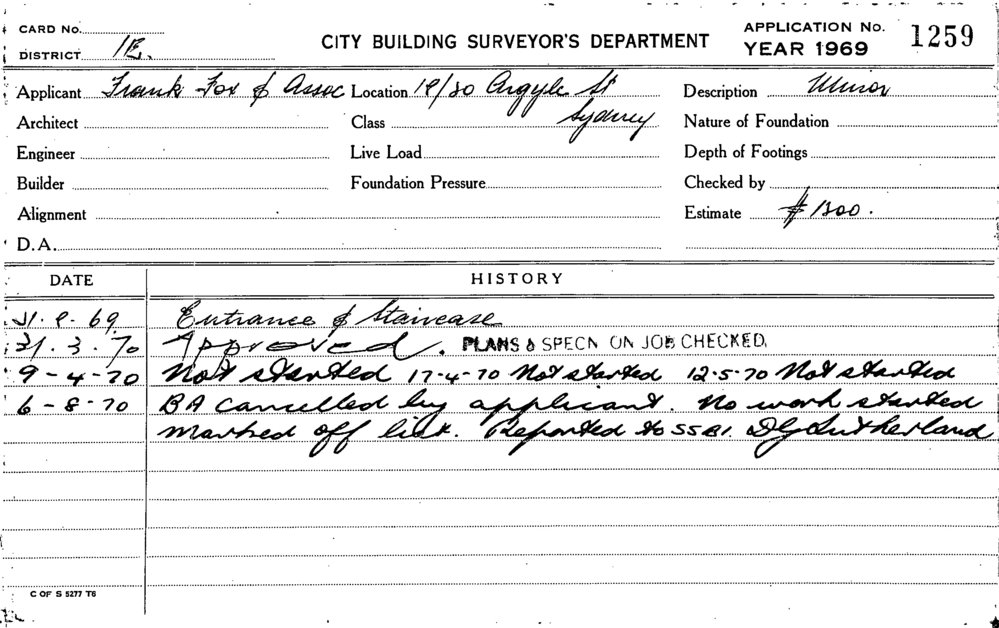 CARD No.
APPLICATION No. 1259
DISTRICT 1E.
CITY BUILDING SURVEYOR'S DEPARTMENT
YEAR 1969
Applicant Frank Fox & Assoc Location 18/20 Argyle St Description Minor
Architect Class Sydney Nature of Foundation
Engineer Live Load Depth of Footings
Builder Foundation Pressure Checked by
Alignment Estimate $1200.
D.A.
DATE HISTORY
69 Entrance & Staircase
31.3.70 Approved. PLANS & SPECN ON JOB CHECKED.
9-4-70 Not started 17-4-70 Not started 12.5.70 Not started
6-8-70 BA cancelled by applicant. No work started
marked off list. Reported to SSBI. DG Sutherland
C OF S 5277 T6